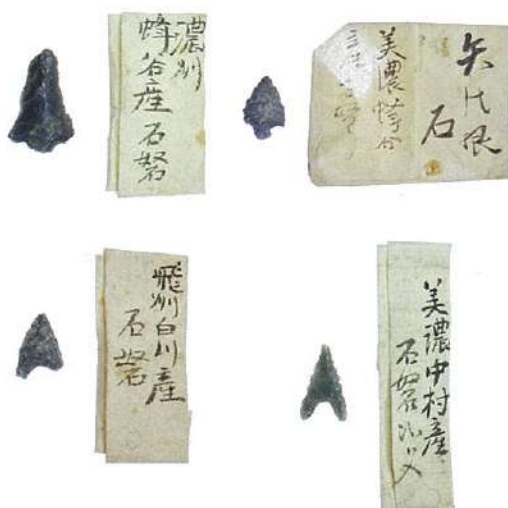 濃州
蜂谷産石砮
矢の根
石
美濃蜂谷
飛州白川産
石砮
美濃中村産
石砮